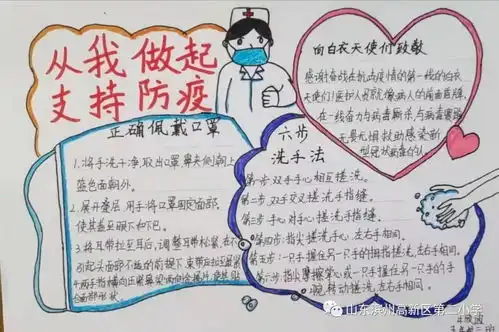 从我做起
支持防疫
向白衣天使们致敬
感谢奋战在抗击疫情的第一线的白衣
天使们!医护人员
在一线奋力与病毒厮杀与病毒
救助感染新
型冠状病毒的人。
正确佩戴口罩
1.将手洗干净,取出口罩鼻夹侧朝上
蓝色面朝外。
2.展开叠层,用手将口罩固定面部,
使其盖至眼下和下巴。
3.将耳带拉至耳后,调整耳带松紧,在不
引起头面部不适的前提下,
六步
洗手法
第一步:双手手心相互搓洗。
第二步:双手交叉搓洗手指缝。
第三步:手心对手心搓洗手指缝。
第四步:指尖搓洗手心,左右手相同。
第五步:一只手握住另一只手的拇指搓洗,左右手相同。
第六步:指尖摩擦掌心或一只手握住另一只手的手
腕,转动搓洗,左右手相同。
山东滨州高新区第二小学